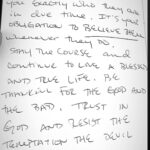 you exactly who they are
in due time. It's your
obligation to believe them
whenever they do.
Stay the course and
continue to live a blessed
and true life. Be
thankful for the good and
the bad. Trust in
God and resist the
temptation the devil